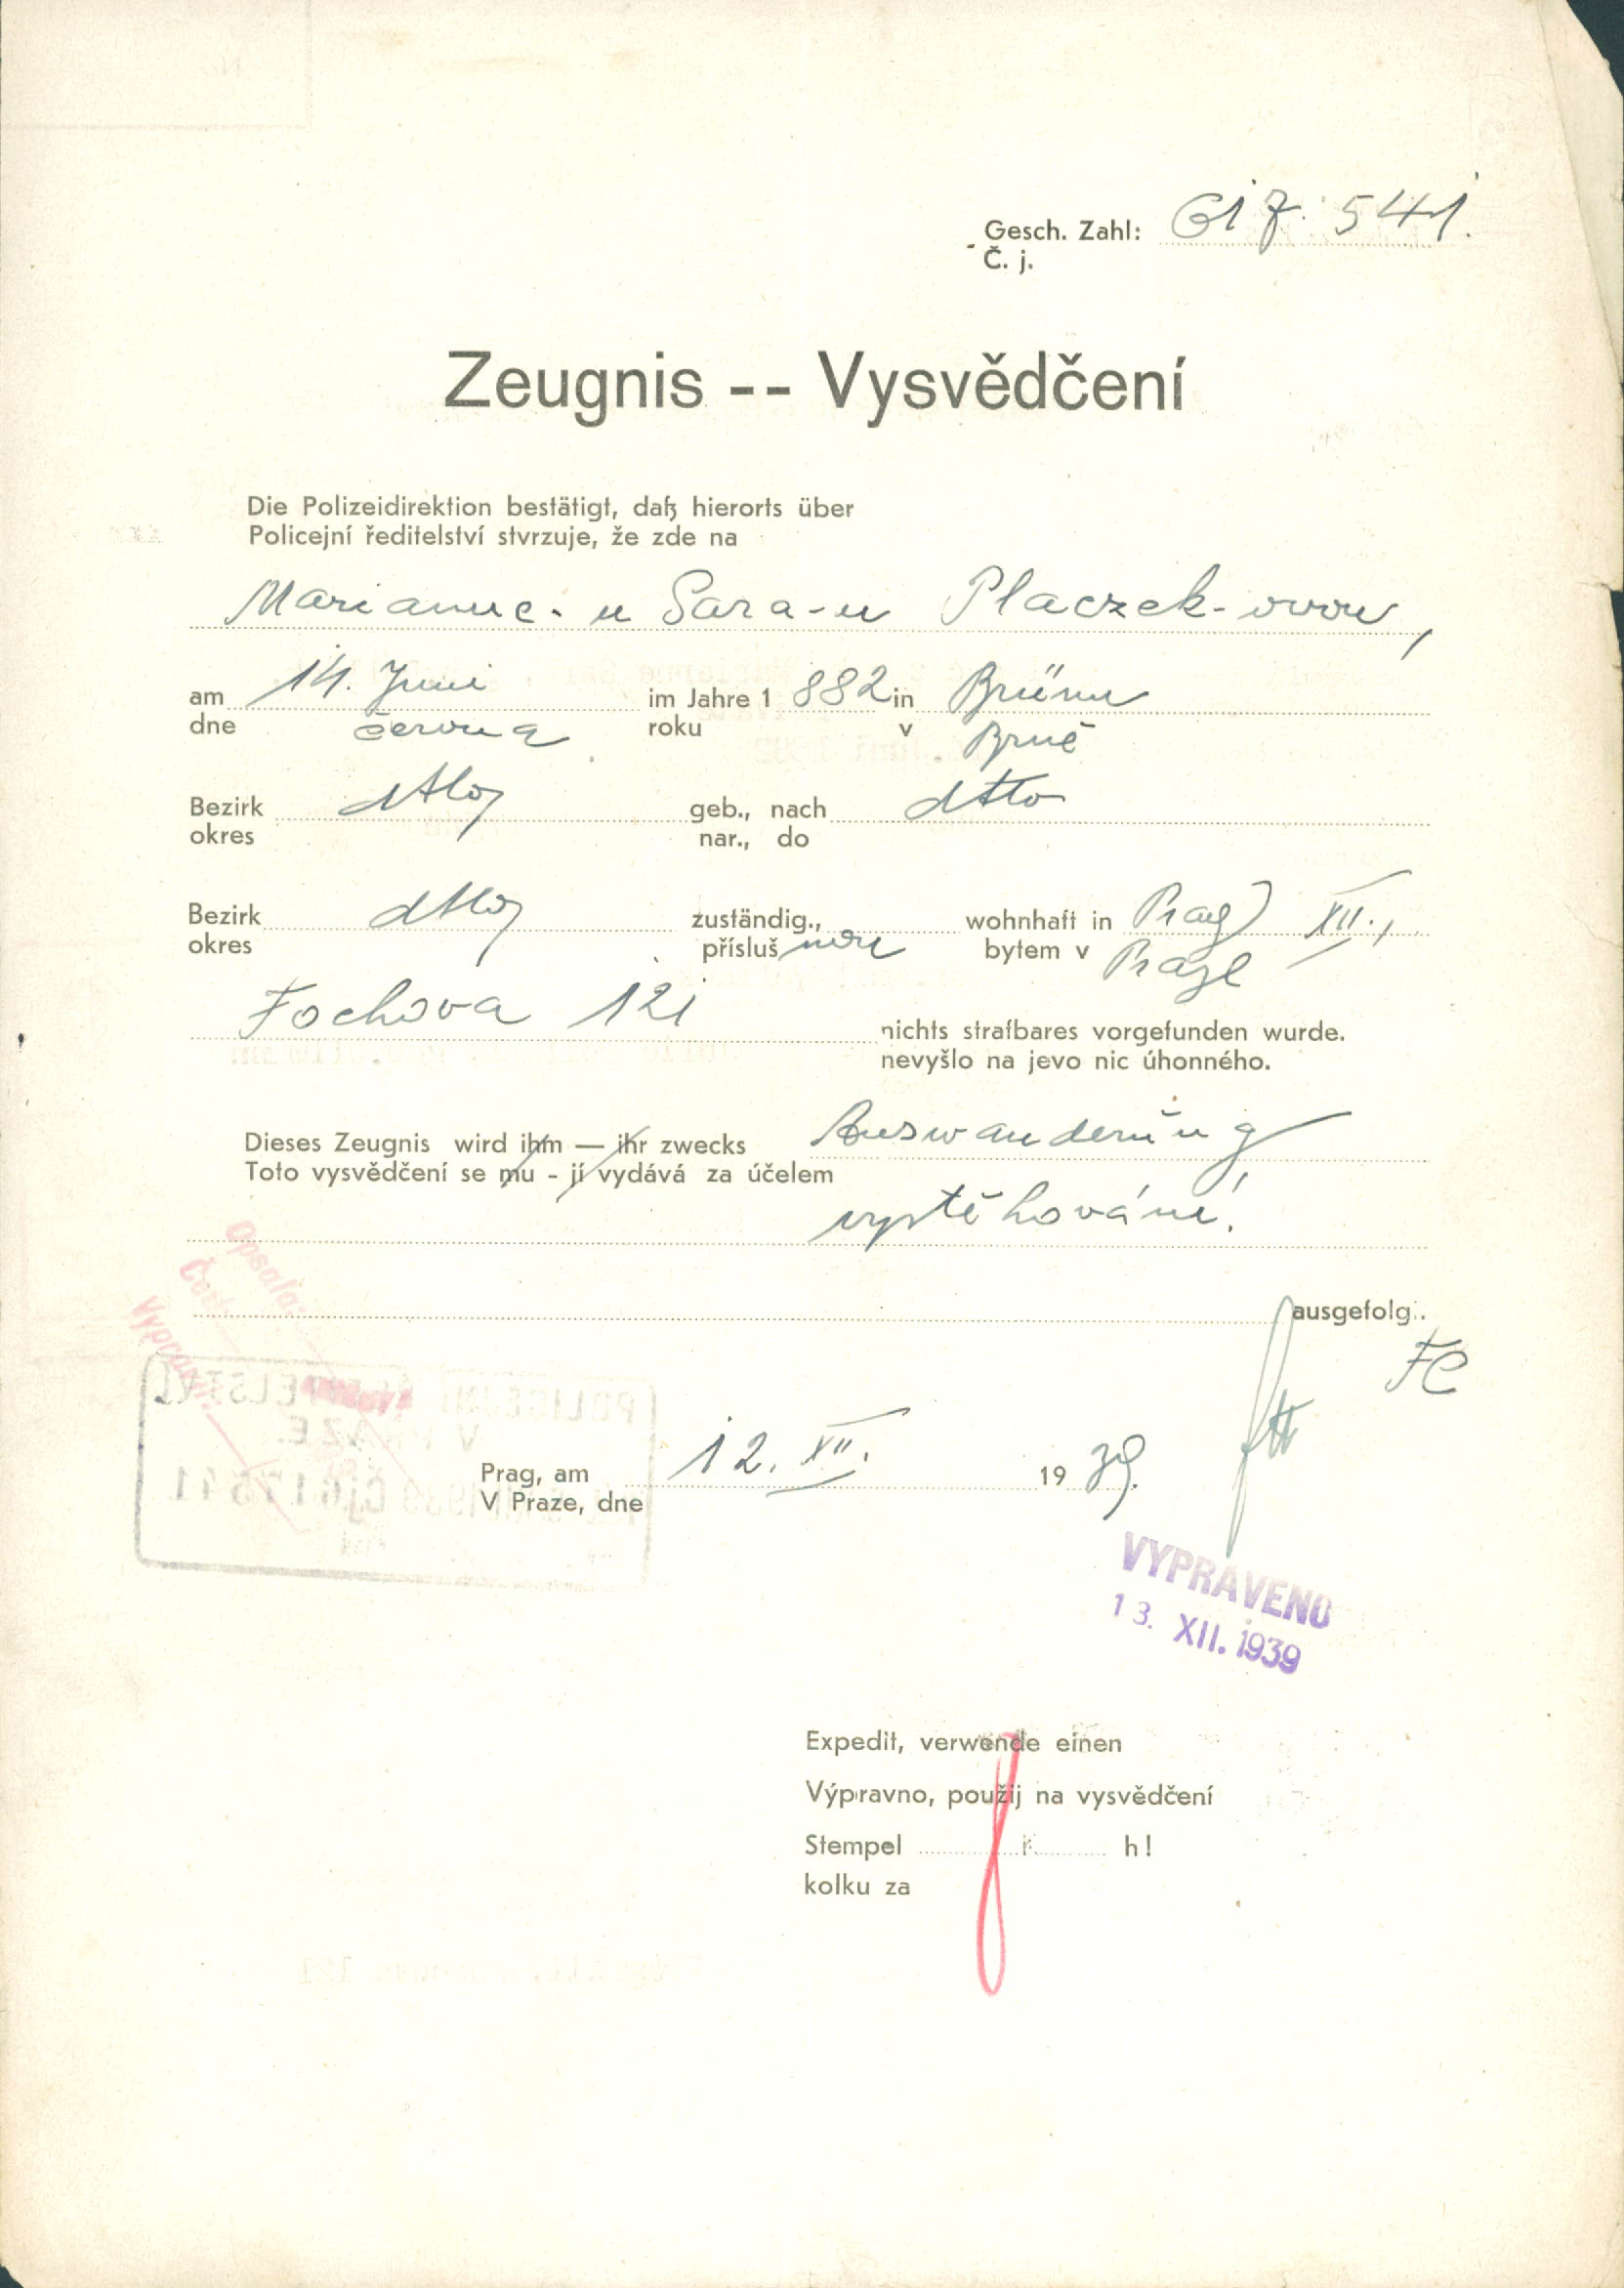 Gesch. Zahl: 617.541.
Č. j.
Zeugnis -- Vysvědčení
Die Polizeidirektion bestätigt, daß hierorts über
Policejní ředitelství stvrzuje, že zde na
Marianne-u Sara-u Placzek-ovou,
am 14. Juni im Jahre 1 882 in Brünn
dne června roku v Brně
Bezirk dtto, geb., nach dtto
okres nar., do
Bezirk dtto, zuständig., wohnhaft in Prag XII.,
okres přísluš nou bytem v Praze
Fochova 121 nichts strafbares vorgefunden wurde.
nevyšlo na jevo nic úhonného.
Dieses Zeugnis wird ihm — ihr zwecks Auswanderung
Toto vysvědčení se mu - jí vydává za účelem
vystěhování.
ausgefolg..
Opsala:
Četl
Vypraveno:
POLICEJNÍ ŘEDITELSTVÍ
V PRAZE.
1939 Čj617541
FC
Prag, am 12. XII. 19 39.
V Praze, dne
VYPRAVENO
13. XII. 1939
Expedit, verwende einen
Výpravno, použij na vysvědčení
Stempel K h!
kolku za